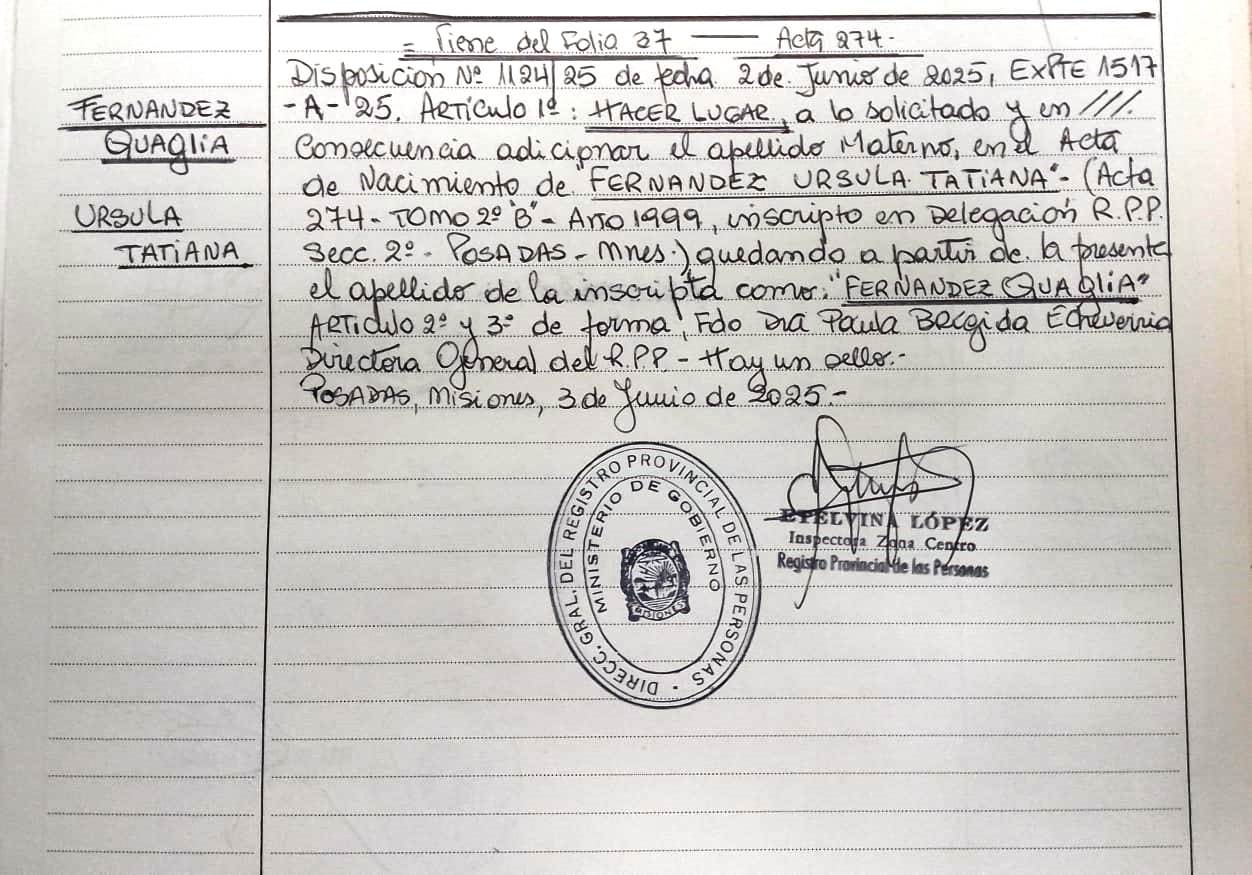 = Viene del Folio 37 —— Acta 274.-
Disposición Nº 1124/25 de fecha 2 de Junio de 2025, EXPTE 1517
-A-'25. Artículo 1º: HACER LUGAR, a lo solicitado y en ////.
Consecuencia adicionar el apellido Materno, en el Acta
de Nacimiento de "FERNANDEZ URSULA TATIANA"- (Acta
274- TOMO 2º "B"- Año 1999, inscripto en Delegación R.P.P.
Secc. 2º- POSADAS - Mnes.) quedando a partir de la presente
el apellido de la inscripta como: "FERNANDEZ QUAGLIA"
ARTICULO 2º y 3º de forma, Fdo Dra Paula Brigida Echeverria
Directora General del R.P.P - Hay un sello.-
POSADAS, Misiones, 3 de Junio de 2025.-
FERNANDEZ
QUAGLIA
URSULA
TATIANA
DIRECC. GRAL. DEL REGISTRO PROVINCIAL DE LAS PERSONAS
MINISTERIO DE GOBIERNO
MISIONES
ETELVINA LÓPEZ
Inspectora Zona Centro
Registro Provincial de las Personas